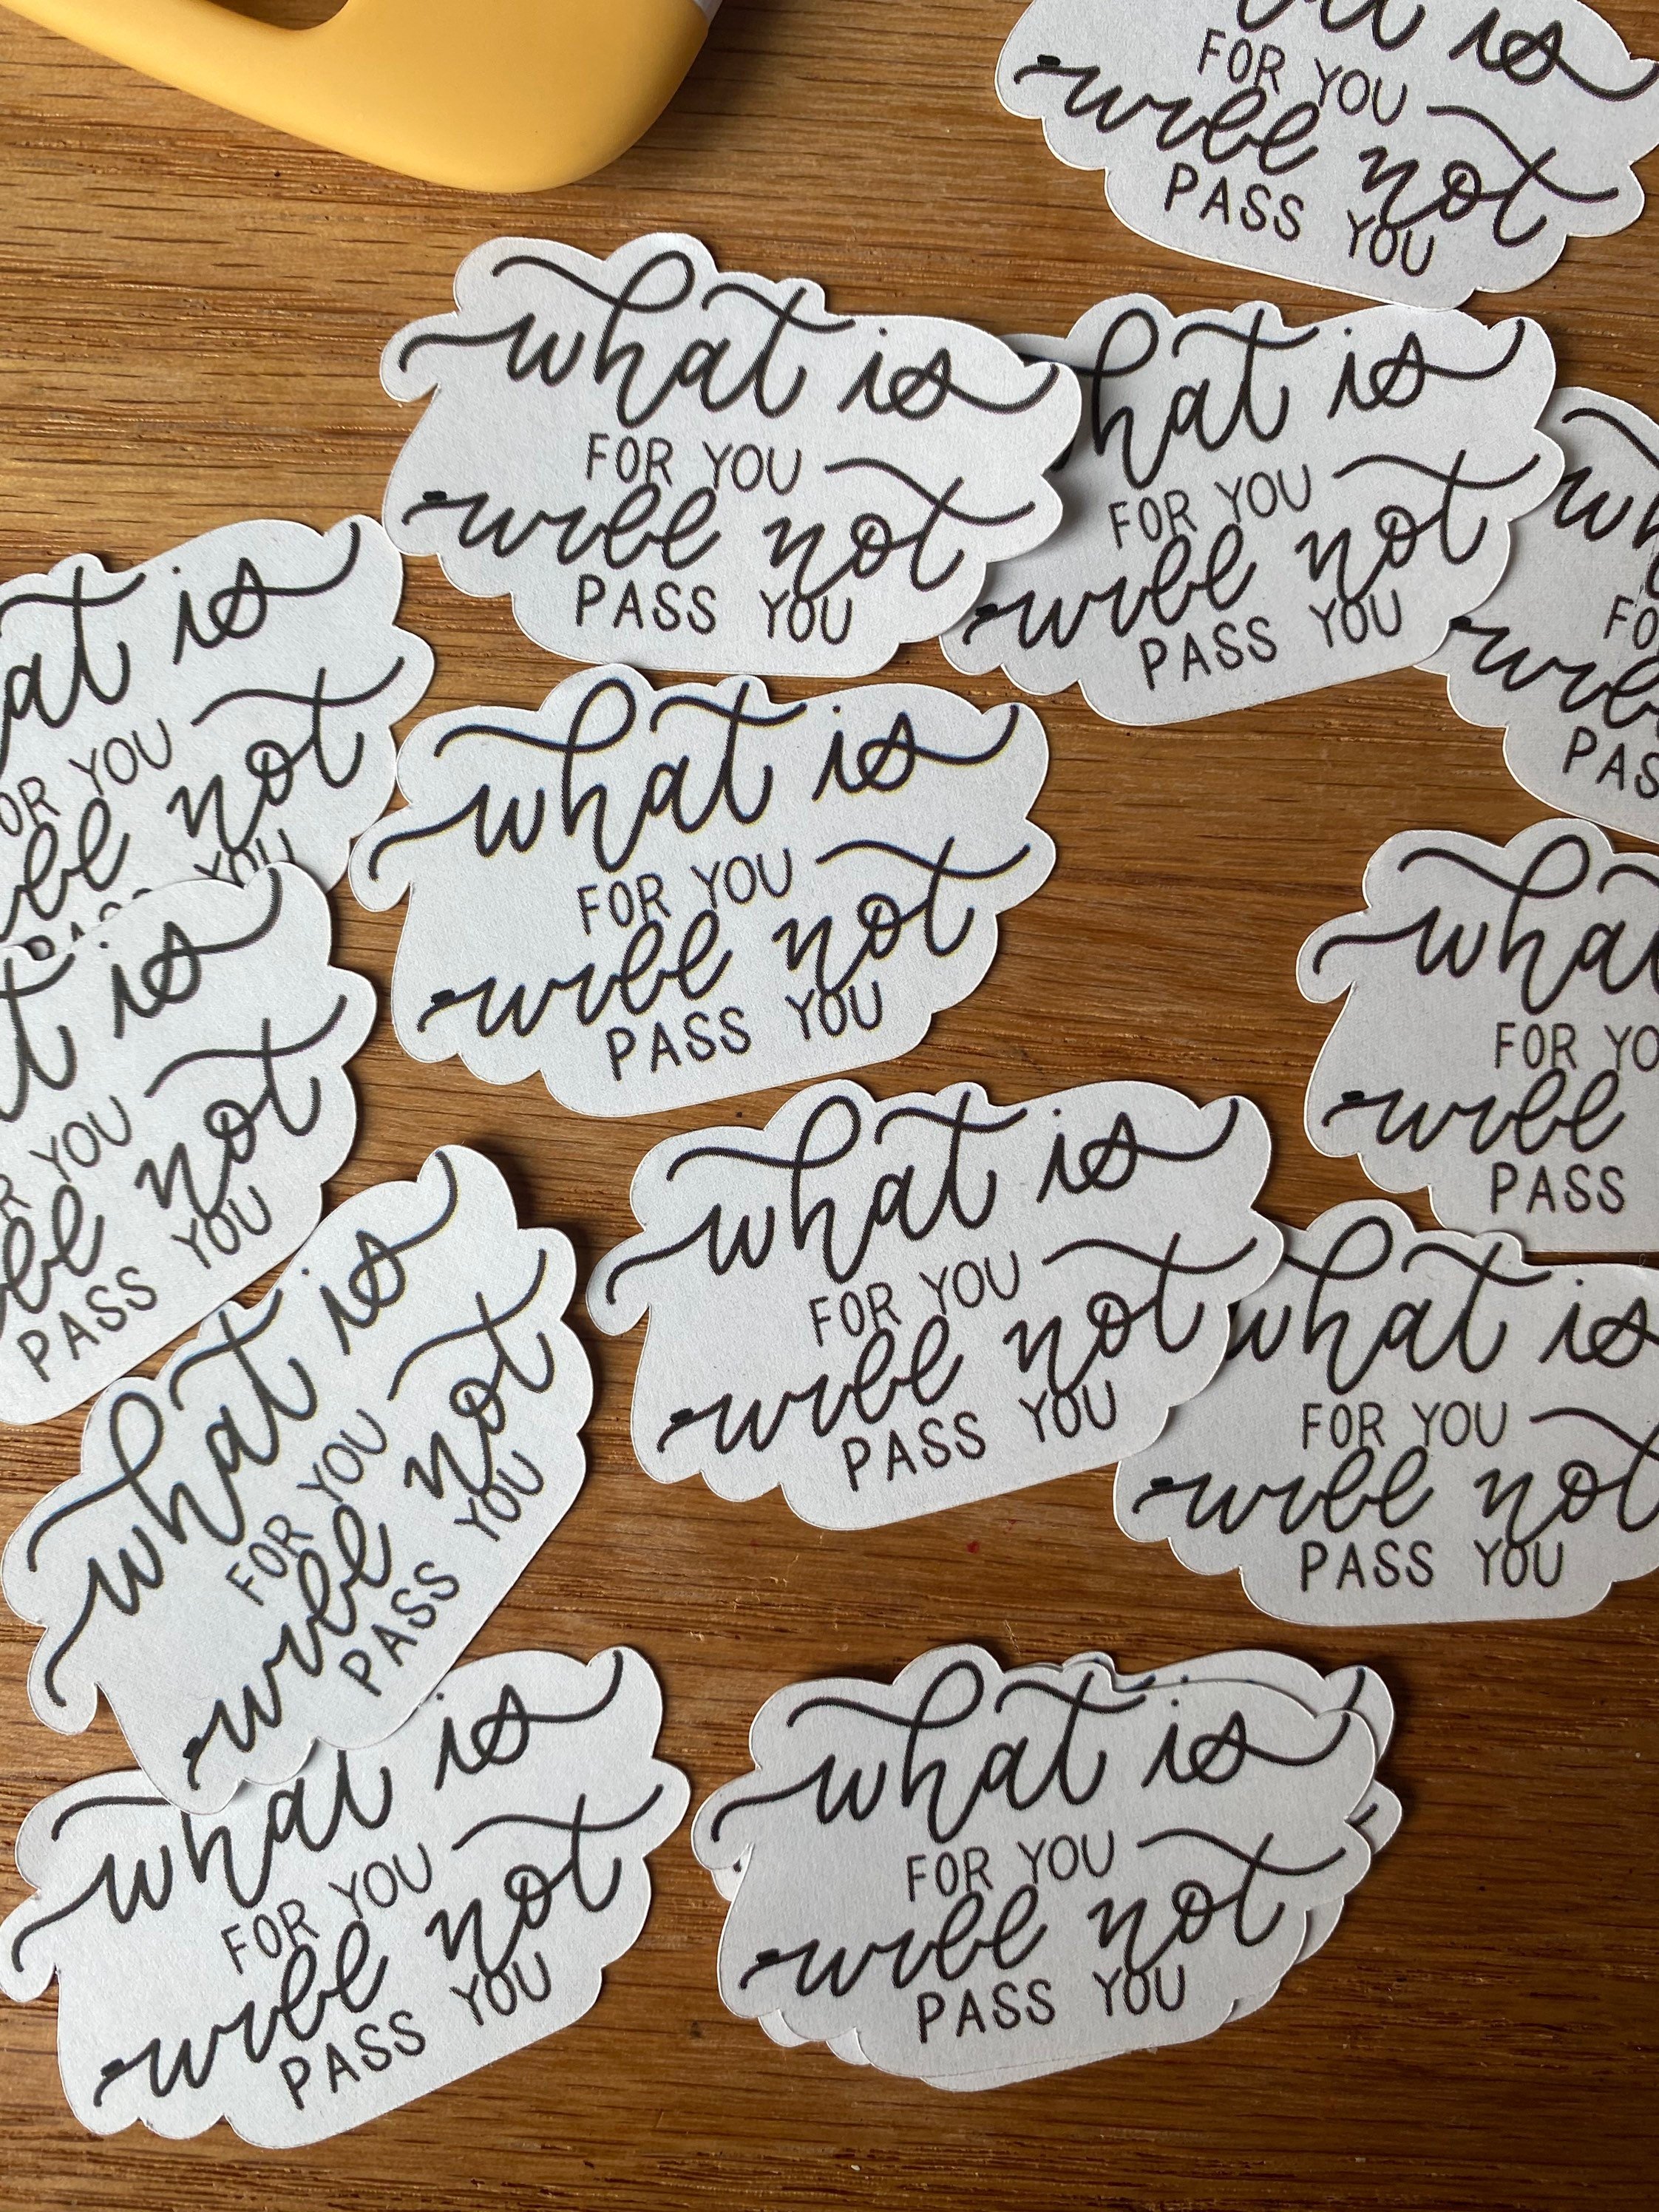 is
FOR YOU
will not
PASS YOU
what is
FOR YOU
will not
PASS YOU
hat is
FOR YOU
will not
PASS YOU
at is
YOU
not
YOU
what is
FOR YOU
will not
PASS YOU
will
is
YOU
not
PASS YOU
FOR
will
PASS
what is
FOR YOU
will not
PASS YOU
what is
FOR YOU
will not
PASS YOU
what is
FOR YOU
will not
PASS YOU
what is
FOR YOU
will not
PASS YOU
what is
FOR YOU
will not
PASS YOU